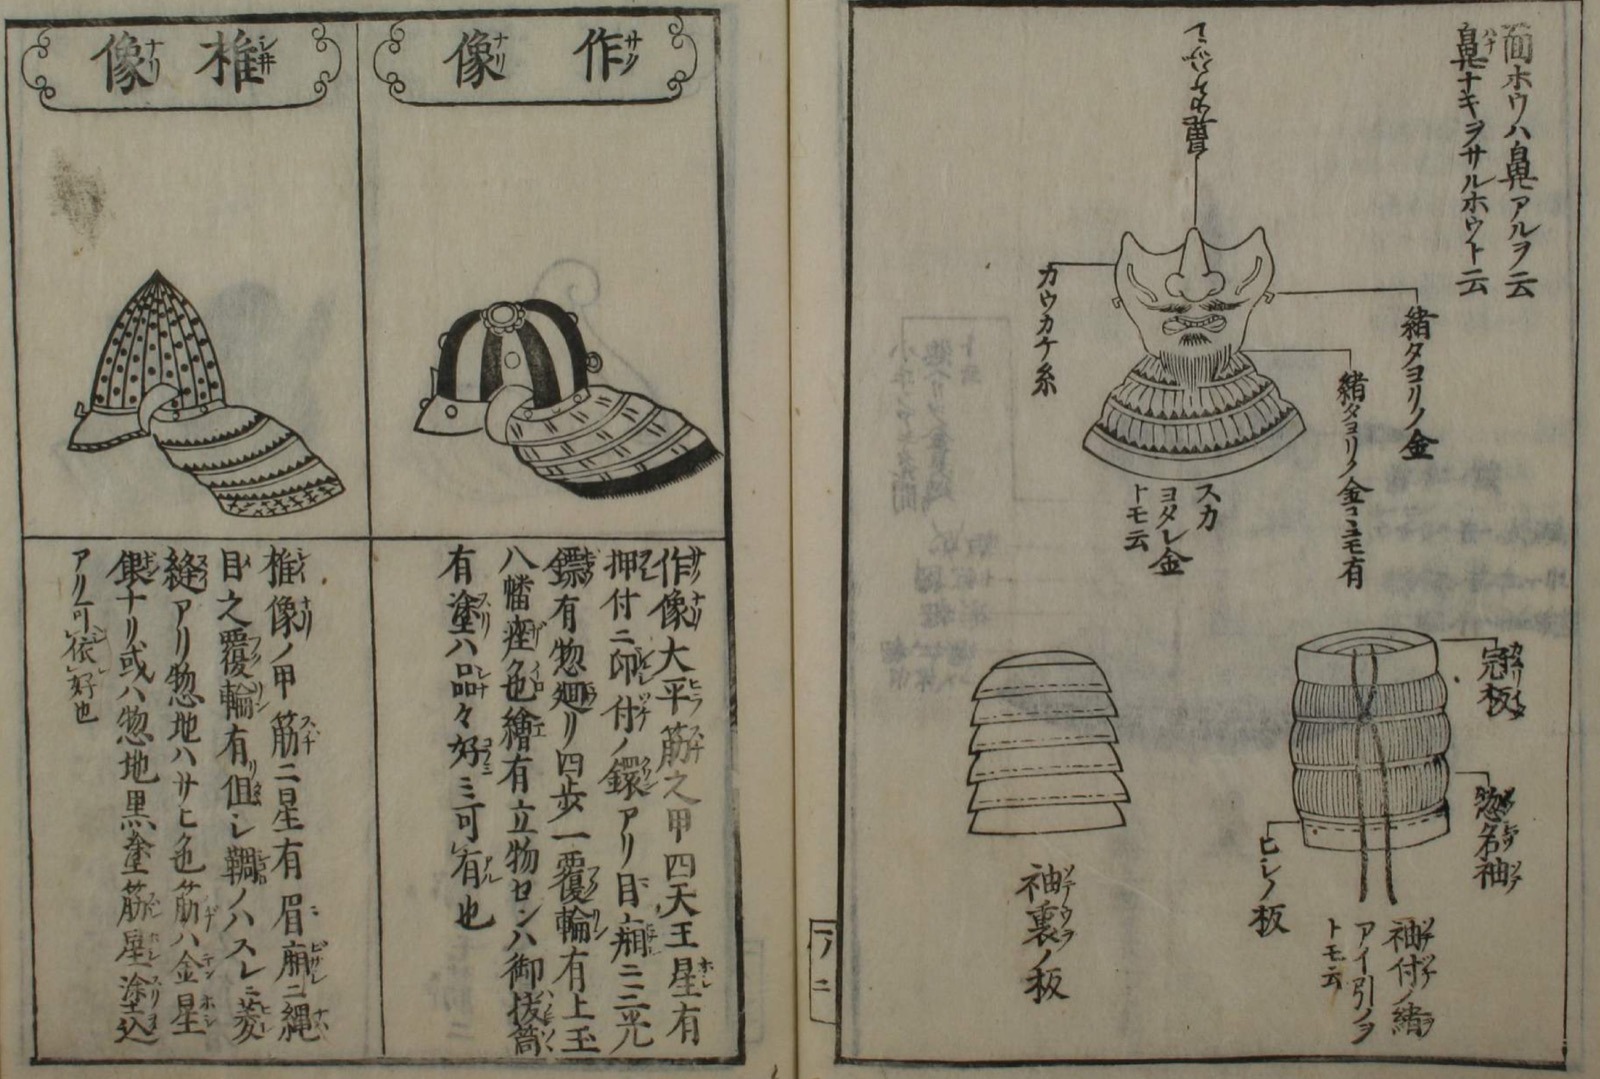 面ホウハ鼻アルヲ云
鼻ナキヲサルホウト云
緒タヨリノ金
緒タヨリノ金コヽニモ有
カウカケ糸
スカ
ヨダレ金
トモ云
冠板
惣名袖
ヒシノ板
袖付ノ緒
アイ引ノヲ
トモ云
袖裏ノ板
作像
作像大平筋之甲四天王星有
押付ニ印付ノ鐶アリ目廂ニ三光
鏢有惣廻リ四歩一覆輪有上玉
八幡座色繪有立物センハ御抜筒
有塗ハ品々好ミ可有也
椎像
椎像ノ甲筋ニ星有眉廂ニ縄
目之覆輪有但シ鞠ノハスレニ菱
縫アリ惣地ハサヒ色筋ハ金星
銀ナリ或ハ惣地黒塗筋星塗込
アリ可依好也